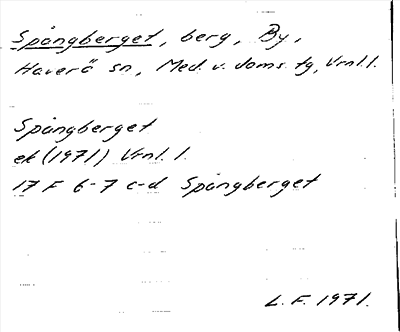 Spångberget, berg, By,
Haverö sn, Med. v. doms. tg, Vrnl. l.
Spångberget
ek (1971) Vrnl. l.
17 F 6-7 c-d Spångberget
L. F. 1971.